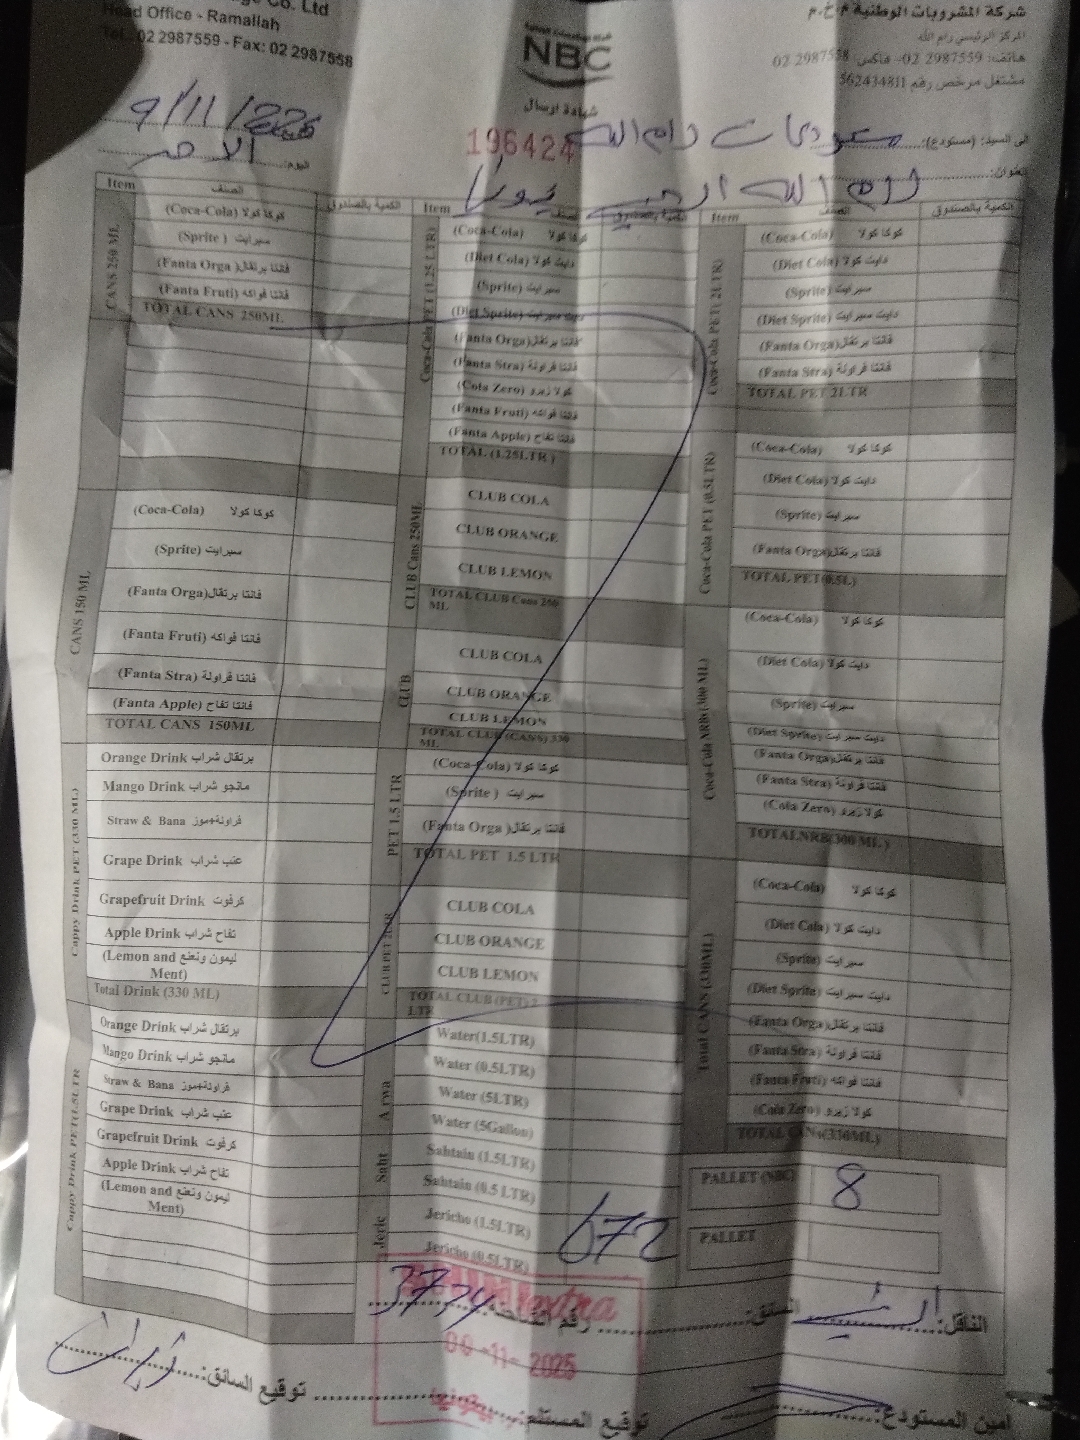 Co. Ltd
Head Office - Ramallah
Tel: 02 2987559 - Fax: 02 2987558
NBC
شركة المشروبات الوطنية م.خ.م
المركز الرئيسي رام الله
هاتف: 2987559 02- فاكس: 2987558 02
مشتغل مرخص رقم 562434811
شهادة ارسال
196424
9/11/2025
اليوم: الاحد
الى السيد: (مستودع): رام الله
عنوان: رام الله
Item الصنف الكمية بالصندوق
CANS 250 ML
(Coca-Cola) كوكا كولا
(Sprite ) سبرايت
(Fanta Orga )فانتا برتقال
(Fanta Fruti) فانتا فواكه
TOTAL CANS 250ML
CANS 150 ML
(Coca-Cola) كوكا كولا
(Sprite) سبرايت
(Fanta Orga)فانتا برتقال
(Fanta Fruti) فانتا فواكه
(Fanta Stra) فانتا فراولة
(Fanta Apple) فانتا تفاح
TOTAL CANS 150ML
Cappy Drink PET (330 ML)
Orange Drink برتقال شراب
Mango Drink مانجو شراب
Straw & Bana فراولة+موز
Grape Drink عنب شراب
Grapefruit Drink كرفوت
Apple Drink تفاح شراب
(Lemon and ليمون ونعنع
Ment)
Total Drink (330 ML)
Cappy Drink PET(1.5LTR
Orange Drink برتقال شراب
Mango Drink مانجو شراب
Straw & Bana فراولة+موز
Grape Drink عنب شراب
Grapefruit Drink كرفوت
Apple Drink تفاح شراب
(Lemon and ليمون ونعنع
Ment)
Item الصنف الكمية بالصندوق
Coca-Cola PET (1.25 LTR)
(Coca-Cola) كوكا كولا
(Diet Cola) دايت كولا
(Sprite) سبرايت
(Diet Sprite) دايت سبرايت
(Fanta Orga)فانتا برتقال
(Fanta Stra) فانتا فراولة
(Cola Zero) كولا زيرو
(Fanta Fruti) فانتا فواكه
(Fanta Apple) فانتا تفاح
TOTAL (1.25LTR )
CLUB Cans 250ML
CLUB COLA
CLUB ORANGE
CLUB LEMON
TOTAL CLUB Cans 250
ML
CLUB
CLUB COLA
CLUB ORANGE
CLUB LEMON
TOTAL CLUB (CANS) 330
ML
PET 1.5 LTR
(Coca-Cola) كوكا كولا
(Sprite ) سبرايت
(Fanta Orga )فانتا برتقال
TOTAL PET 1.5 LTR
CLUB PET 2LTR
CLUB COLA
CLUB ORANGE
CLUB LEMON
TOTAL CLUB (PET) 2
LTR
Arwa
Water(1.5LTR)
Water (0.5LTR)
Water (5LTR)
Water (5Gallon)
Saht
Sahtain (1.5LTR)
Sahtain (0.5 LTR)
Jeric
Jericho (1.5LTR)
Jericho (0.5LTR)
672
Item الصنف الكمية بالصندوق
Coca-Cola PET( 2LTR)
(Coca-Cola) كوكا كولا
(Diet Cola) دايت كولا
(Sprite) سبرايت
(Diet Sprite) دايت سبرايت
(Fanta Orga)فانتا برتقال
(Fanta Stra) فانتا فراولة
TOTAL PET 2LTR
Coca-Cola PET (0.5LTR)
(Coca-Cola) كوكا كولا
(Diet Cola) دايت كولا
(Sprite) سبرايت
(Fanta Orga)فانتا برتقال
TOTAL PET(0.5L)
Coca-Cola NRB(300 ML)
(Coca-Cola) كوكا كولا
(Diet Cola) دايت كولا
(Sprite) سبرايت
(Diet Sprite) دايت سبرايت
(Fanta Orga)فانتا برتقال
(Fanta Stra) فانتا فراولة
(Cola Zero) كولا زيرو
TOTALNRB(300 ML )
Total CANS (330ML)
(Coca-Cola) كوكا كولا
(Diet Cola) دايت كولا
(Sprite) سبرايت
(Diet Sprite) دايت سبرايت
(Fanta Orga)فانتا برتقال
(Fanta Stra) فانتا فراولة
(Fanta Fruti) فانتا فواكه
(Cola Zero) كولا زيرو
TOTAL CANs(330ML)
PALLET (NBC) 8
PALLET
الناقل: السائق: رقم الشاحنة: 3774
extra
09-11-2025
امين المستودع: توقيع المستلم: توقيع السائق: